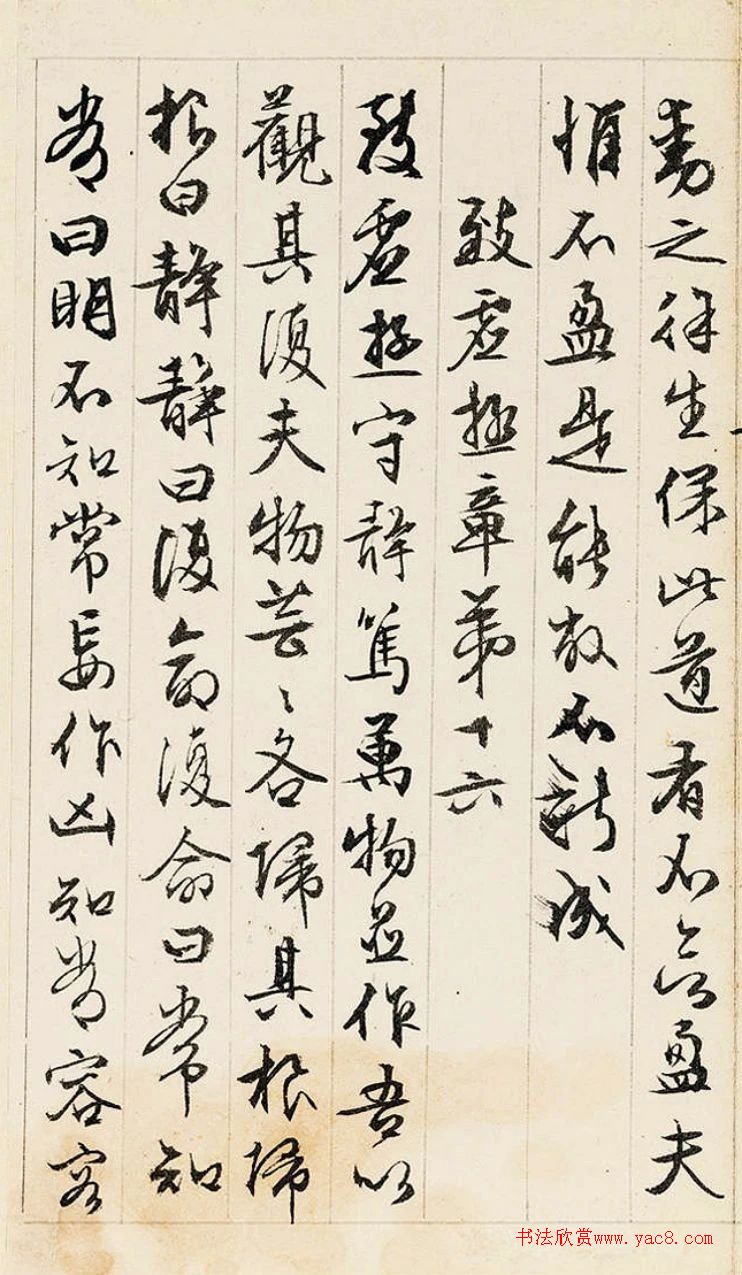 動之徐生保此道者不欲盈夫
惟不盈是能敝不新成
致虛極章第十六
致虛極守靜篤萬物並作吾以
觀其復夫物芸〻各歸其根歸
根曰靜靜曰復命復命曰常知
常曰明不知常妄作凶知常容容
书法欣赏www.yac8.com